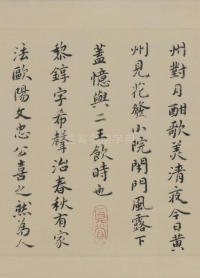 州對月酣歌美清夜今日黃
州見花發小院閉門風露下
蓋憶與二王飲時也
黎錞字希聲治春秋有家
法歐陽文忠公喜之然為人